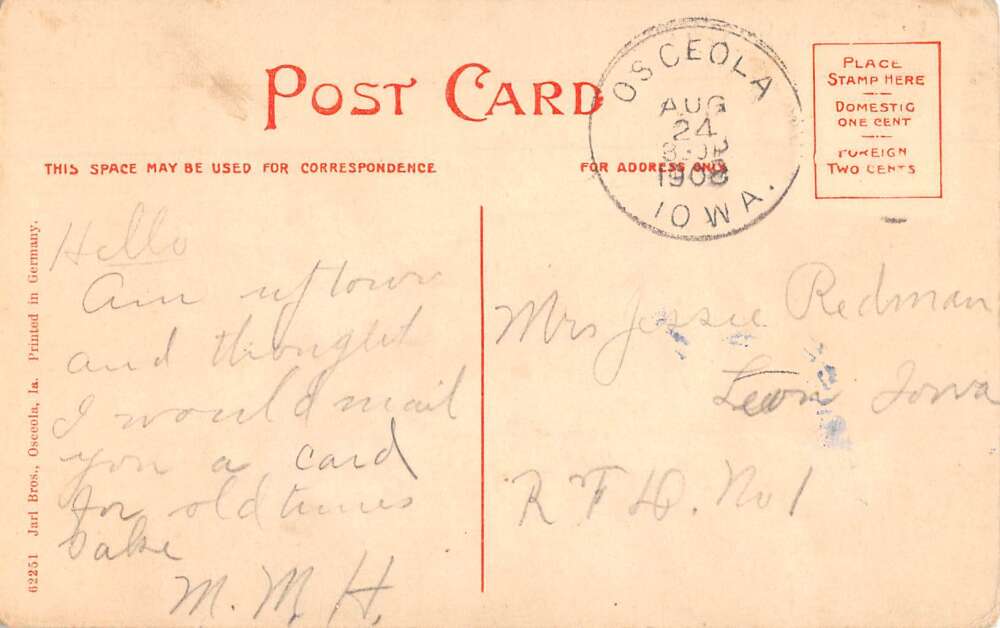 POST CARD
OSCEOLA
AUG
24
1908
IOWA.
PLACE
STAMP HERE
DOMESTIC
ONE CENT
FOREIGN
TWO CENTS
THIS SPACE MAY BE USED FOR CORRESPONDENCE
FOR ADDRESS ONLY
62251 Jarl Bros., Osceola, Ia. Printed in Germany.
Hello
Am uptown
and thought
I would mail
you a card
for old times
sake
M. M. H.
Mrs Jessie Redman
Leon Iowa
R F D. No 1